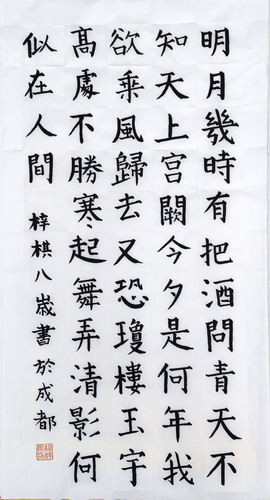 明月幾時有把酒問青天不
知天上宮闕今夕是何年我
欲乘風歸去又恐瓊樓玉宇
髙處不勝寒起舞弄清影何
似在人間
梓棋八歲書於成都